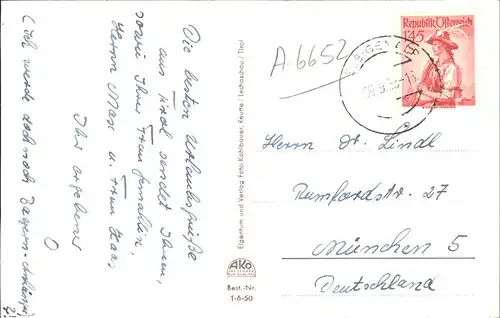 Die besten Urlaubsgrüße
aus Tirol sendet Ihnen,
sowie Ihrer Frau Gemahlin,
Herrn Maxs u. Frau Haas
Ihr ergebener
(Ich werde doch noch Bayern-Anhänger)
Eigentum und Verlag Foto-Kohlbauer, Reutte / Lechaschau / Tirol
AKO
Best.-Nr.
1-6-50
A 6652
Republik Österreich
1S45
Herrn Dr. Lindl
Rumfordstr. 27
München 5
Deutschland